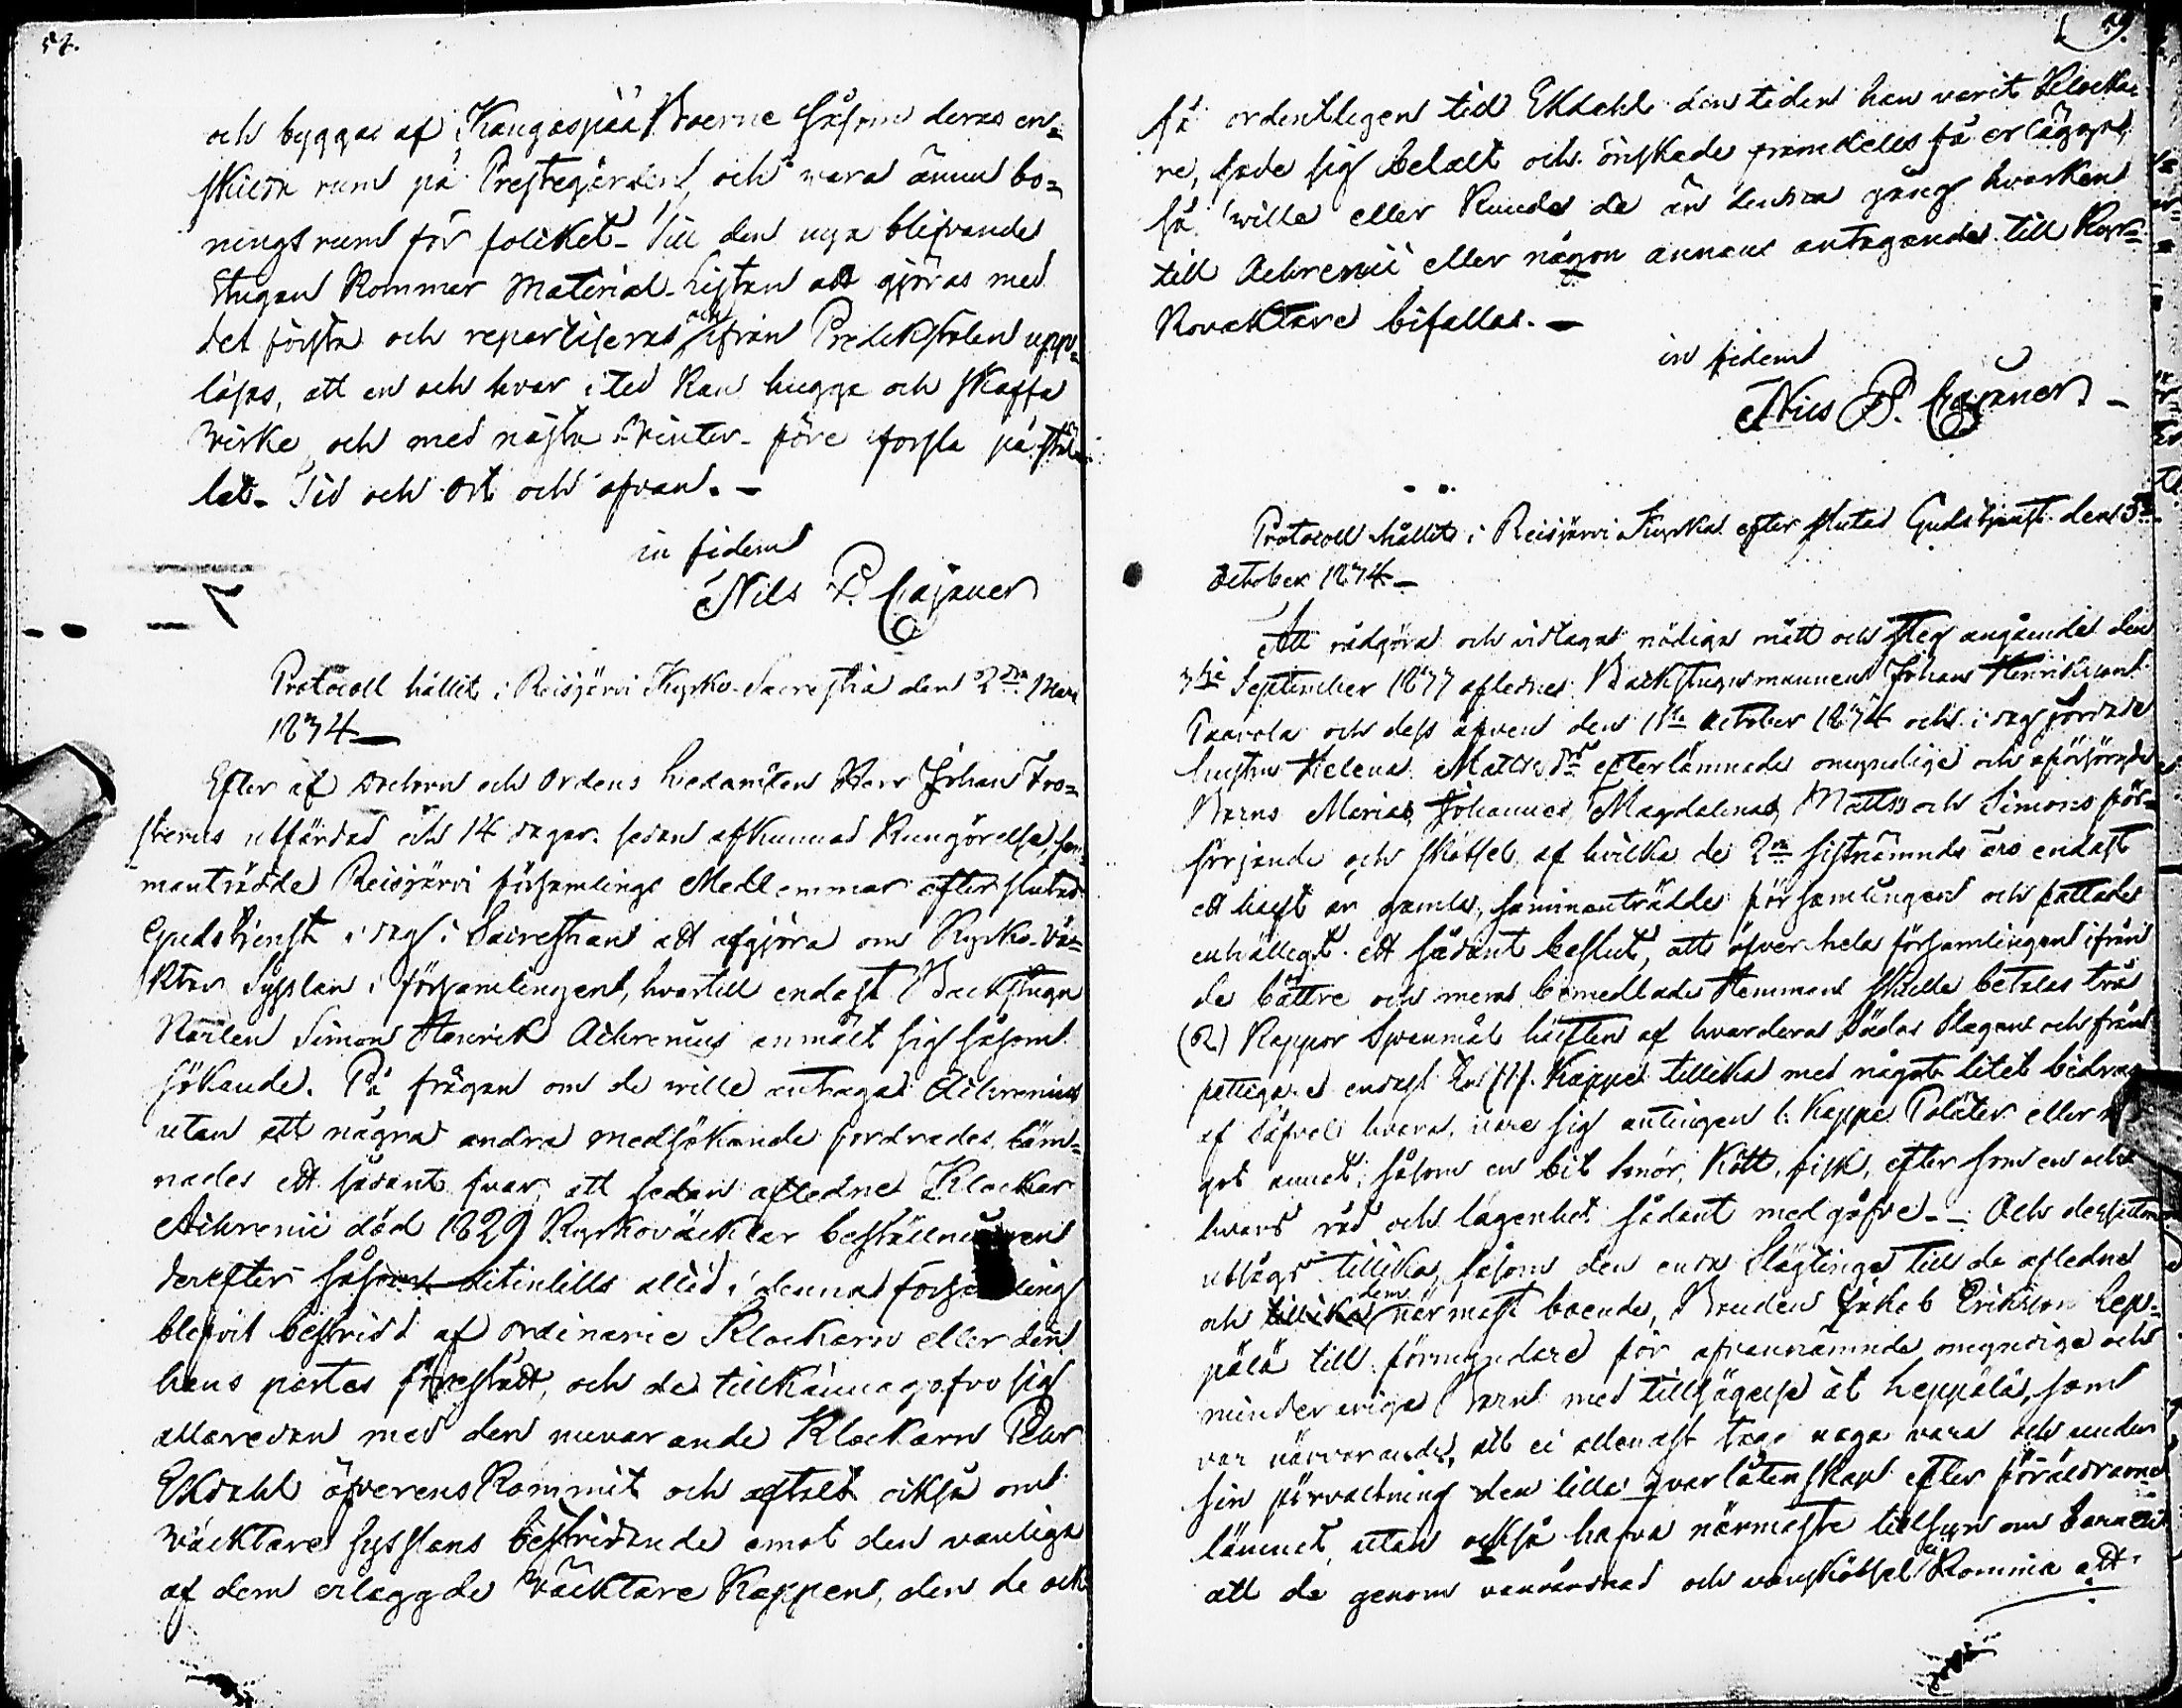 57.
och byggas af Kangaspää Boerne såsom deras en-
skilda rum på Prestegården, och vara ännu bo-
ningsrum för folcket. Till den nya blifvande
Stugan kommer Material-Listan att gjöras med
det första och repartiseras och ifrån Predikstolen upp-
läsas, att en och hvar i tid kan hugga och skaffa
virke och med nästa Winter-före forsla på stäl-
let. Tid och Ort och ofvan. —
in fidem
Nils P. Cajaner
Protocoll hållit i Reisjärvi Kyrko-Sacrestia den 2dra Mars
1834 —
Efter af och Ordens Ledamoten Herr Johan Fro-
sterus utfärdad och 14 dagar sedan afkunnad Kungörelse, sam-
manträdde Reisjärvi församlings Medlemmar efter slutad
Gudstjenst i dag i Sacrestian att afgjöra om Kyrko-väk-
ktar Sysslan i församlingen, hvartill endast Backstugu
Karlen Simon Henrik Achrenius anmält sig såsom
sökande. På frågan om de wille antaga Achrenius
utan att några andra medsökande fordrades läm-
nades ett sådant svar, att sedan afledne Klockar
Achrenii död 1829 Kyrkoväcktar beställningen
derefter såsom hitintills alltid i denna församling
blifvit bestridd af ordinarie Klockarn eller den
hans portes förestådt, och de tillkännagofvo sig
allaredan med den nuvarande Klockarn Pehr
Ekdahl öfverenskommit och aftalt också om
Wäcktare sysslans bestridande emot den vanliga
af dem erlaggde Wäcktare Kappen, den de och
så ordentligen till Ekdahl den tiden han varit Klocka-
re, sade sig betalt och önskade framdeles få erlägga,
så wille eller kunde de än denna gång hvarken
till Achrenii eller någon annans antagande till Kyr-
kovacktare bifallas. —
in fidem
Nils P. Cajaner. —
Protocoll hållit i Reisjärvi Kyrka efter slutad Gudstjenst den 5te
October 1834 —
Att rådgöra och vidtaga nödiga mått och steg angående den
September 1833 aflednes Backstugumannen Johan Henriksson
Paavola och dess äfven den 1sta October 1834 och i dag jordade
hustru Helena Matts dr efterlämnade omyndige och oförsörgde
Barns Marias, Johannes, Magdalenas, Matts och Simons för-
sörjande och skötsel, af hvilka de 2ne sistnämnde äro endast
ett halft år gamla, sammanträdde församlingen och fattades
enhälligt ett sådant beslut, att öfver hela församlingen ifrån
de bättre och mera bemedlade Hemman skulle betalas två
(2) Kappor Spanmål hälften af hvardera Sädes Slagen och från
fattigare endast En /1/ Kappe tillika med något litet bidrag
af Säfvel hvara, vare sig antingen 1. Kappe Potäter eller nå
got annat; såsom en bit smör, Kött, fisk, efter som en och
hvars råd och lägenhet sådant medgåfve. — Och dessutom
utsågs tillika, såsom den enda Slägtinge till de aflednes
och dem närmast boende, Bonden Jakob Eriksson Lep-
pälä till förmyndare för ofvannämnde omyndiga och
minderariga Barn med tillsägelse åt Leppälä, som
var närvarande, att ei allenast taga noga vara och under
sin förvaltning den lilla qvarlåtenskap efter föräldrarne
lämnat, utan också hafva närmaste tillsyn om barnen
att de genom vanvårdnad och vanskötsel ei komma att